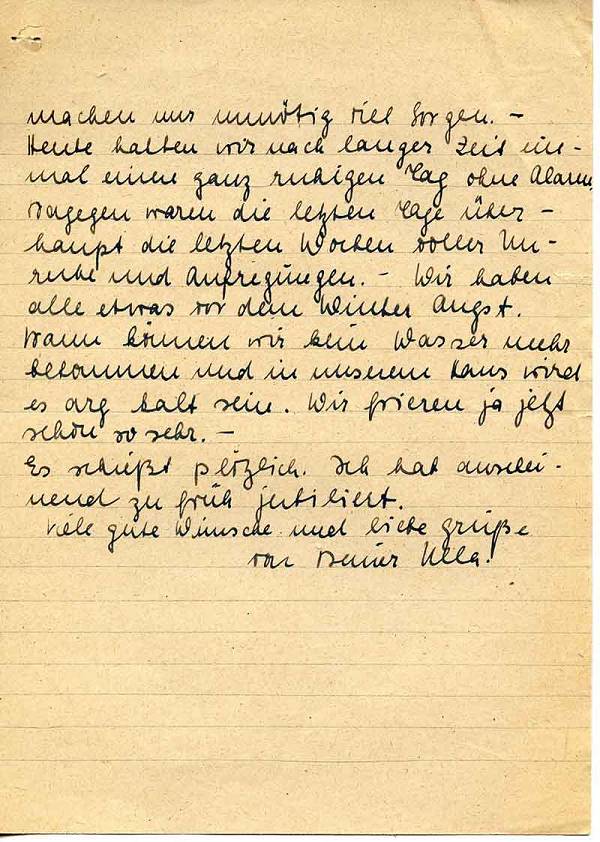 machen uns unnötig viel Sorgen. –
Heute hatten wir nach langer Zeit ein-
mal einen ganz ruhigen Tag ohne Alarm,
dagegen waren die letzten Tage über-
haupt die letzten Wochen voller Un-
ruhe und Aufregungen. – Wir haben
alle etwas vor dem Winter Angst.
Dann können wir kein Wasser mehr
bekommen und in unserem Haus wird
es arg kalt sein. Wir frieren ja jetzt
schon so sehr. –
Es schießt plötzlich. Ich hab anschei-
nend zu früh jubiliert.
Viele gute Wünsche und liebe Grüße
von Deiner Ulla.